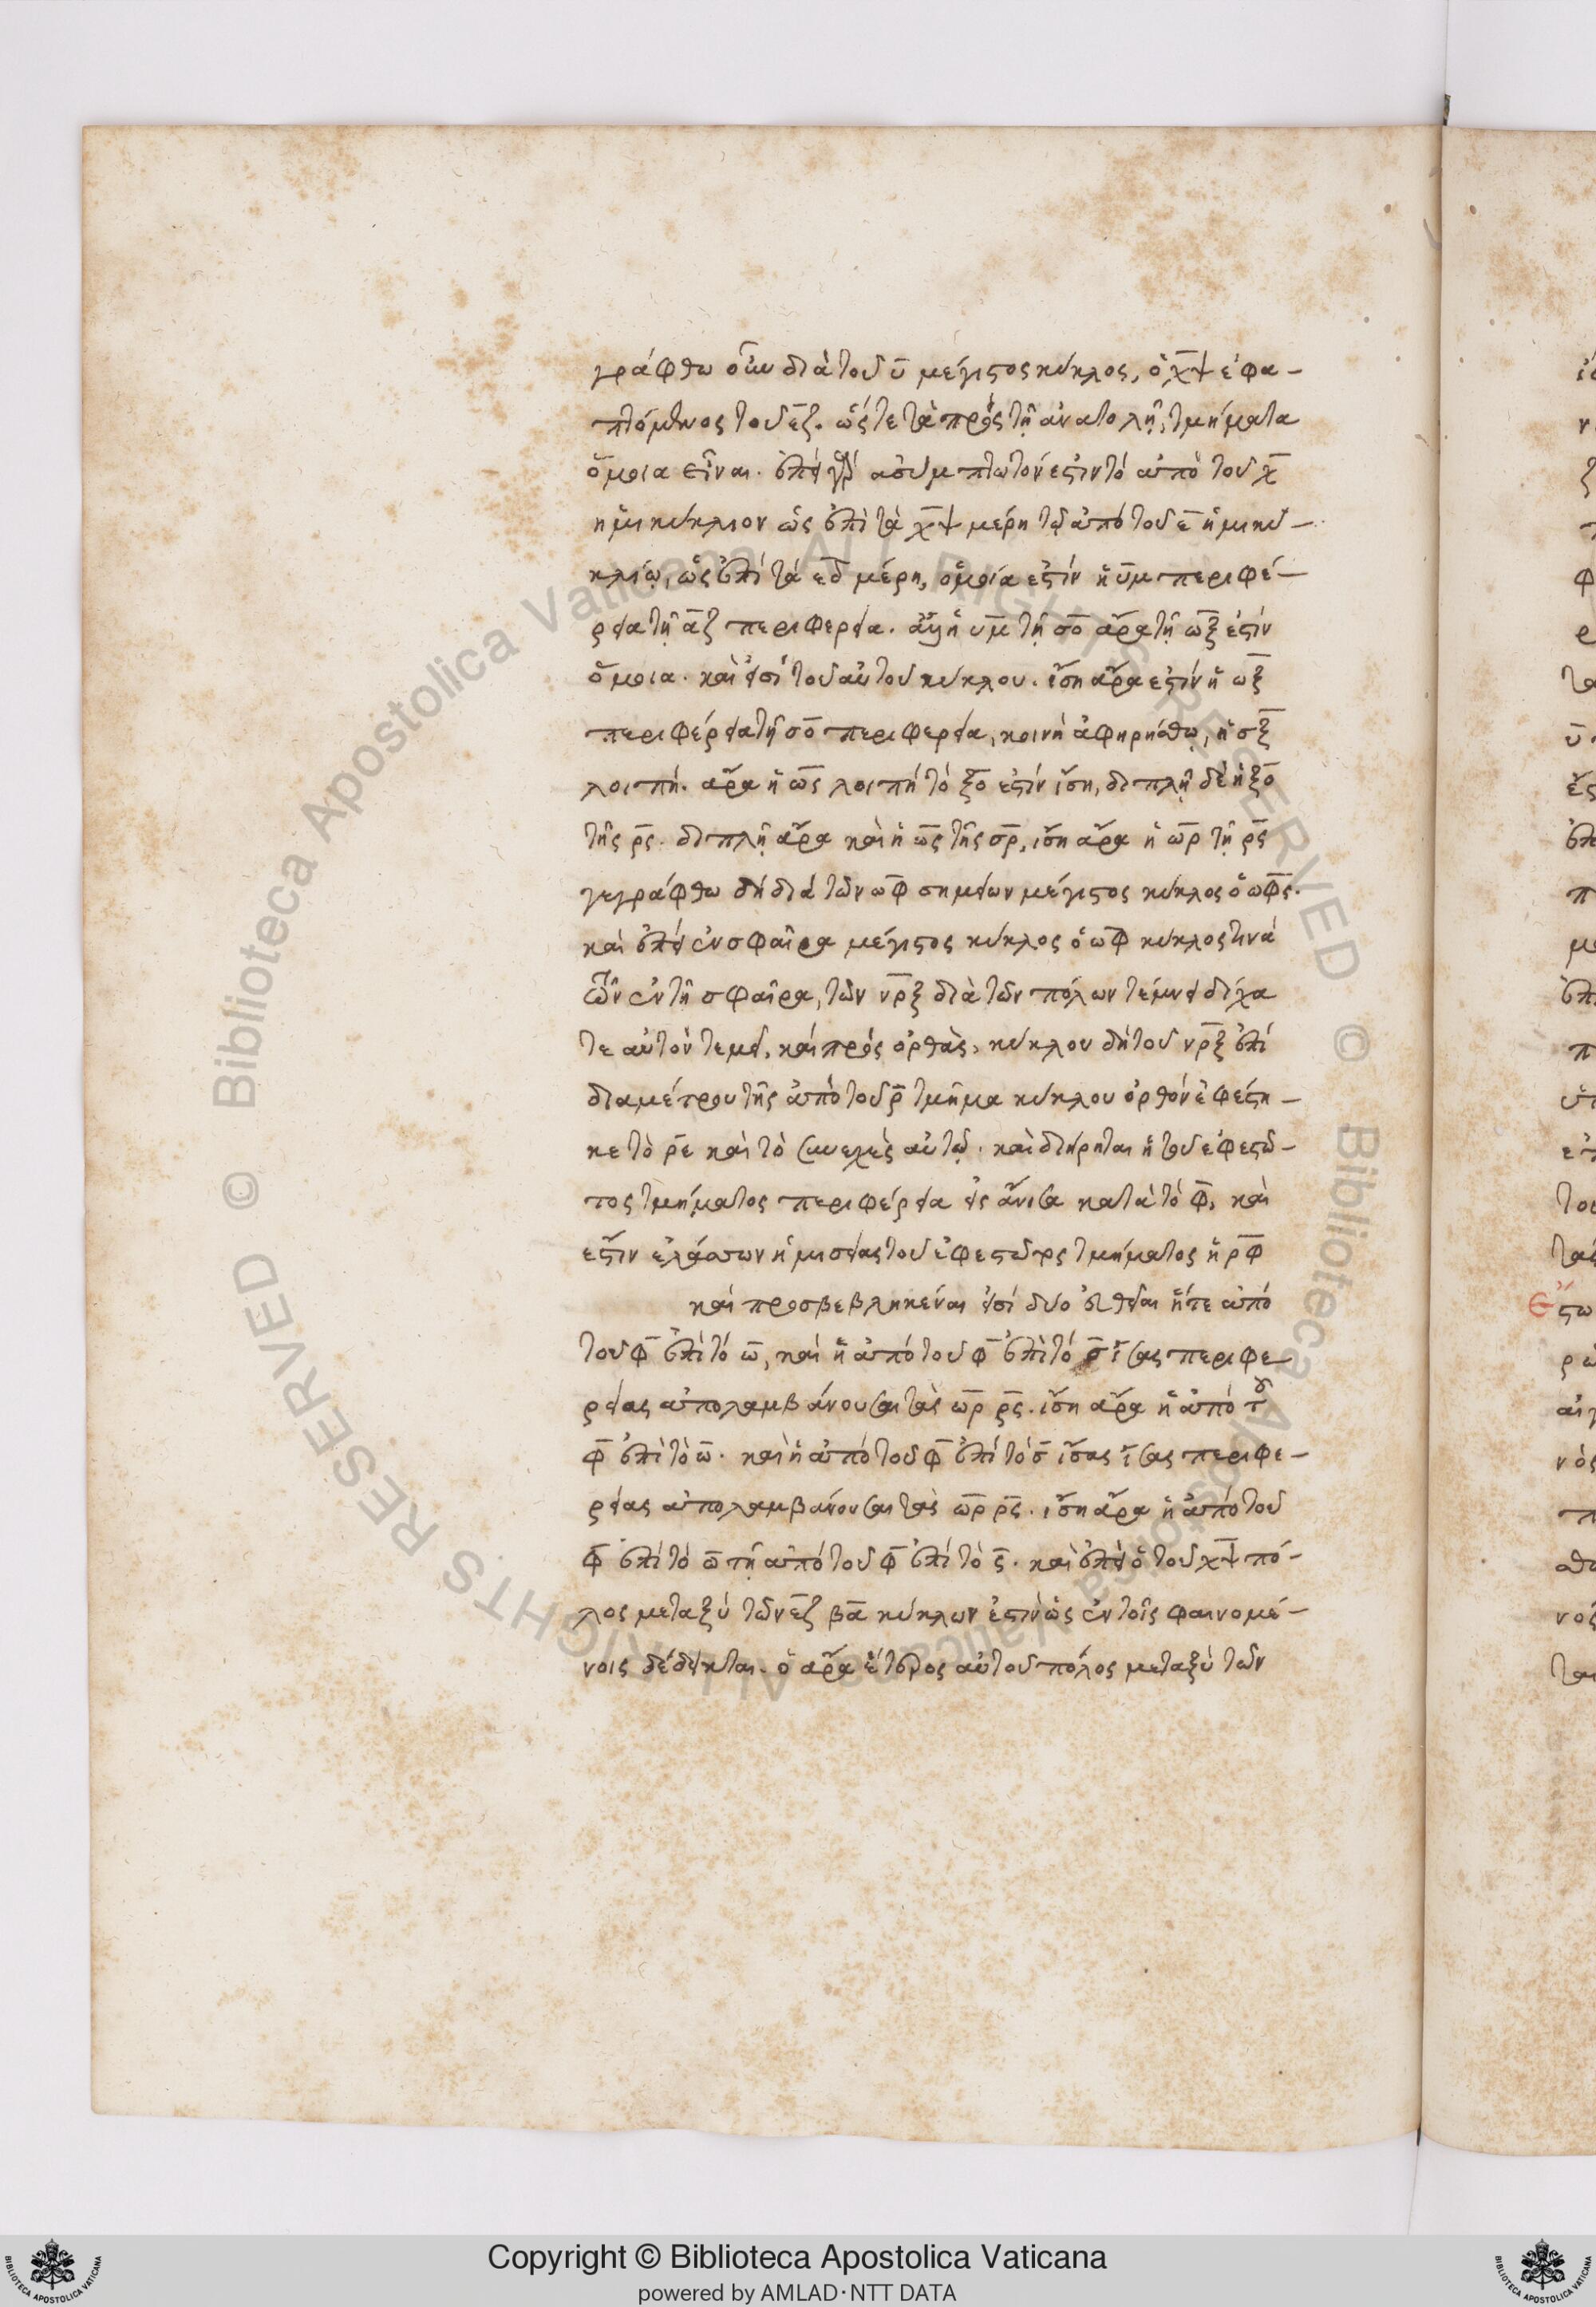 γράφθω οὖν διὰ τοῦ υ̅ μέγιστος κύκλος, ὁ χ̅ψ̅ ἐφα-
πτόμενος τοῦ ε̅ζ̅. ὥστε τὰ πρὸς τῇ ἀνατολῇ, τμήματα
ὅμοια εἶναι. ἐπεὶ γὰρ ἀσύμπτωτόν ἐστιν τὸ ἀπὸ τοῦ χ̅
ἡμικύκλιον ὡς ἐπὶ τὰ χ̅ψ̅ μέρη τῷ ἀπὸ τοῦ ε̅ ἡμικυ-
κλίῳ, ὡς ἐπὶ τὰ ε̅δ̅ μέρη, ὁμοία ἐστίν ἡ υ̅μ̅ περιφέ-
ρεια τῇ α̅ζ̅ περιφερεία. ἡ υ̅μ̅ τῇ σ̅ο̅ ἄρα τῇ ω̅ξ̅ ἐστίν
ὅμοια. καὶ εἰσὶ τοῦ αὐτοῦ κύκλου. ἴση ἄρα ἐστίν ἡ ω̅ξ̅
περιφέρεια τῇ σ̅ο̅ περιφερεία, κοινὴ ἀφῃρήσθω, ἡ σ̅ξ̅
λοιπή. ἄρα ἡ ω̅ς̅ λοιπή τὸ ξ̅ο̅ ἐστίν ἴση, διπλῇ δὲ ἡ ξ̅ο̅
τῆς ρ̅ς̅. διπλῇ ἄρα καὶ ἡ ω̅ς̅ τῆς σ̅ρ̅, ἴση ἄρα ἡ ω̅ρ̅ τῇ ρ̅ς̅
γεγράφθω δὴ διὰ τῶν ω̅φ̅ σημείων μέγιστος κύκλος ὁ ω̅φ̅ς̅.
καὶ ἐπεὶ ἐν σφαῖρα μέγιστος κύκλος ὁ ω̅φ̅ κύκλος τινά
τῶν ἐν τῇ σφαῖρα, τῶν ν̅ρ̅ξ̅ διὰ τῶν πόλων τέμνει δίχα
τε αὐτὸν τεμεῖ, καὶ πρὸς ὀρθὰς, κύκλου δὴ τοῦ ν̅ρ̅ξ̅ ἐπί
διαμέτρου τῆς ἀπὸ τοῦ ρ̅ τμῆμα κύκλου ὀρθόν ἐφέστη-
κε τὸ ρ̅ε̅ καὶ τὸ συνεχὲς αὐτῷ. καὶ διῄρηται ἡ τοῦ ἐφεστῶ-
τος τμήματος περιφέρεια εἰς ἄνισα κατὰ τὸ φ̅, καὶ
ἐστίν ἐλάσσων ἡμισείας τοῦ ἐφεστῶτος τμήματος ἡ ρ̅φ̅
καὶ προσβεβληκέναι εἰσί δύο εὐθεῖαι ἥτε ἀπό
τοῦ φ̅ ἐπὶ τὸ ω̅, καὶ ἡ ἀπὸ τοῦ φ̅ ἐπὶ τὸ σ̅ ἴσας περιφε
ρείας ἀπολαμβάνουσαι τὰς ω̅ρ̅ ρ̅ς̅. ἴση ἄρα ἡ ἀπὸ τοῦ
φ̅ ἐπὶ τὸ ω̅. καὶ ἡ ἀπὸ τοῦ φ̅ ἐπὶ τὸ σ̅ ἴσας ἴσας περιφε-
ρείας ἀπολαμβάνουσαι τὰς ω̅ρ̅ ρ̅ς̅. ἴση ἄρα ἡ ἀπὸ τοῦ
φ̅ ἐπὶ τὸ ω̅ τῇ ἀπὸ τοῦ φ̅ ἐπὶ τὸ ς̅. καὶ ἐπεὶ ὁ τοῦ χ̅ψ̅ πό-
λος μεταξύ τῶν ε̅ζ̅ β̅α̅ κύκλων ἐστὶν ὡς ἐν τοῖς φαινομέ-
νοις δέδεικται. ὁ ἄρα ἕτερος αὐτοῦ πόλος μεταξὺ τῶν
Copyright © Biblioteca Apostolica Vaticana
powered by AMLAD·NTT DATA